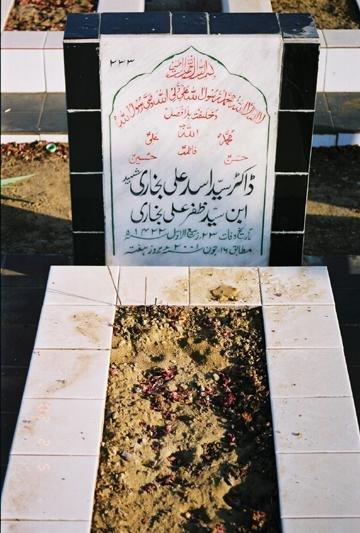 ۲۳۳
بسم اللہ الرحمن الرحیم
لا الہ الا اللہ محمد رسول اللہ علی ولی اللہ وصی رسول اللہ
وخلیفتہ بلا فصل
اللہ
محمد علی
فاطمہ
حسن حسین
ڈاکٹر سید اسد علی بخاری شہید
ابن سید ظفر علی بخاری
تاریخ وفات ۲۳ ربیع الاول ۱۴۲۲ھ
مطابق ۱۶ جون ۲۰۰۱ء بروز ہفتہ